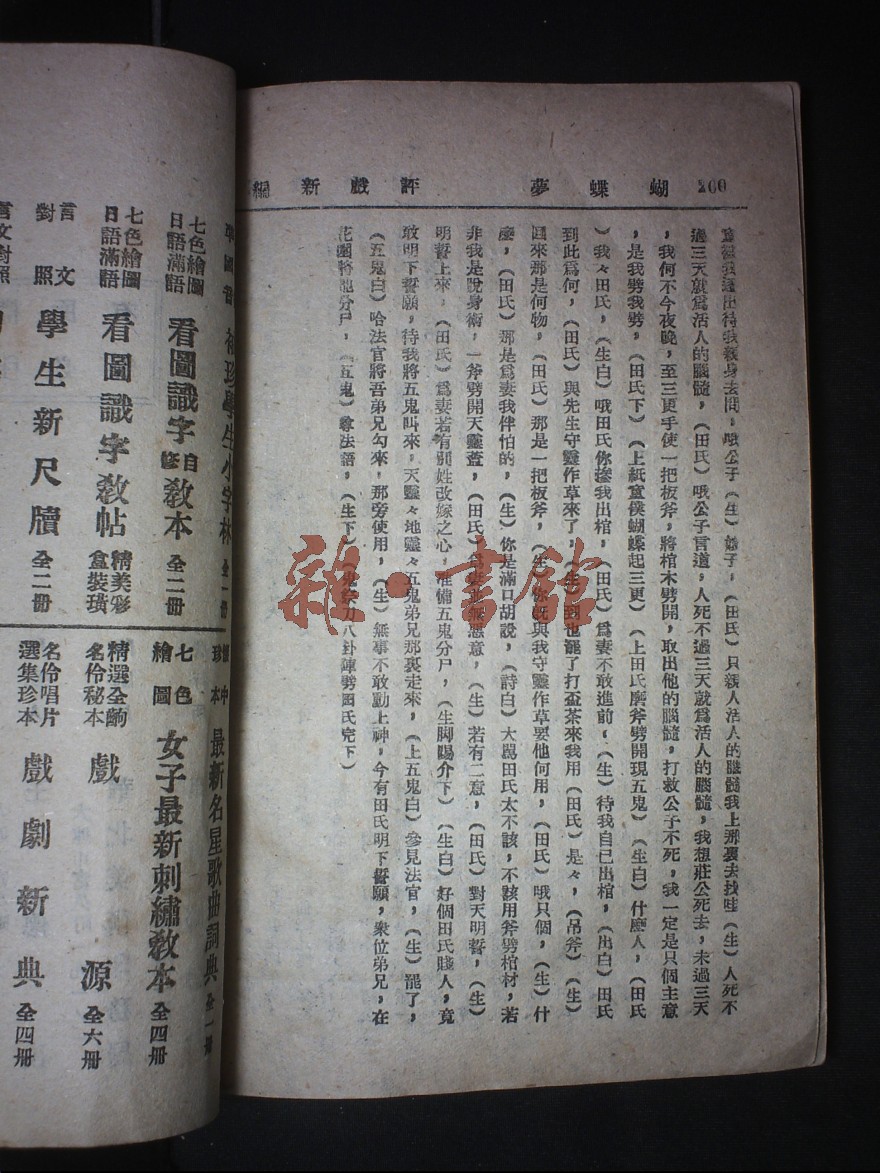 200　蝴蝶夢　評戲新編
待我親身去問，哦公子（生）娘子，（田氏）只親人活人的腦髓我上那裏去找哇（生）人死不
過三天就爲活人的腦髓，（田氏）哦公子言道，人死不過三天就爲活人的腦髓，我想莊公死去，未過三天
，我何不今夜晚，至三更手使一把板斧，將棺木劈開，取出他的腦髓，打救公子不死，我一定是只個主意
，是我劈我劈，（田氏下）（上紙童僕蝴蝶起三更）（上田氏磨斧劈開現五鬼）（生白）什麽人，（田氏
）我々田氏，（生白）哦田氏你攙我出棺，（田氏）爲妻不敢進前，（生）待我自已出棺，（出白）田氏
到此爲何，（田氏）與先生守靈作草來了，（生）到也罷了打盃茶來我用（田氏）是々，（吊斧）（生）
回來那是何物，（田氏）那是一把板斧，（生）你既與我守靈作草要他何用，（田氏）哦只個，（生）什
麽，（田氏）那是爲妻我伴怕的，（生）你是滿口胡說，（詩白）大罵田氏太不該，不該用斧劈棺材，若
非我是脫身術，一斧劈開天靈蓋，（田氏）爲妻並無惡意，（生）若有二意，（田氏）對天明誓，（生）
明誓上來，（田氏）爲妻若有別姓改嫁之心，准備五鬼分尸，（生脚踢介下）（生白）好個田氏賤人，竟
敢明下誓願，待我將五鬼叫來，天靈々地靈々五鬼弟兄那裏走來，（上五鬼白）參見法官，（生）罷了，
（五鬼白）哈法官將吾弟兄勾來，那旁使用，（生）無事不敢動上神，今有田氏明下誓願，衆位弟兄，在
花園將他分尸，（五鬼）尊法語，（生下）（鬼祭刀八卦陣劈田氏完下）
袖珍學生小字林　全一册
七色繪圖　日語滿語　看圖識字自修敎本　全二册
七色繪圖　日語滿語　看圖識字敎帖　精美彩盒裝璜
言文對照　學生新尺牘　全二册
言文對照
最新名星歌曲詞典　全一册
七色繪圖　女子最新刺繡敎本　全四册
精選全齣　名伶秘本　戲源　全六册
名伶唱片　選集珍本　戲劇新典　全四册
雜·書館